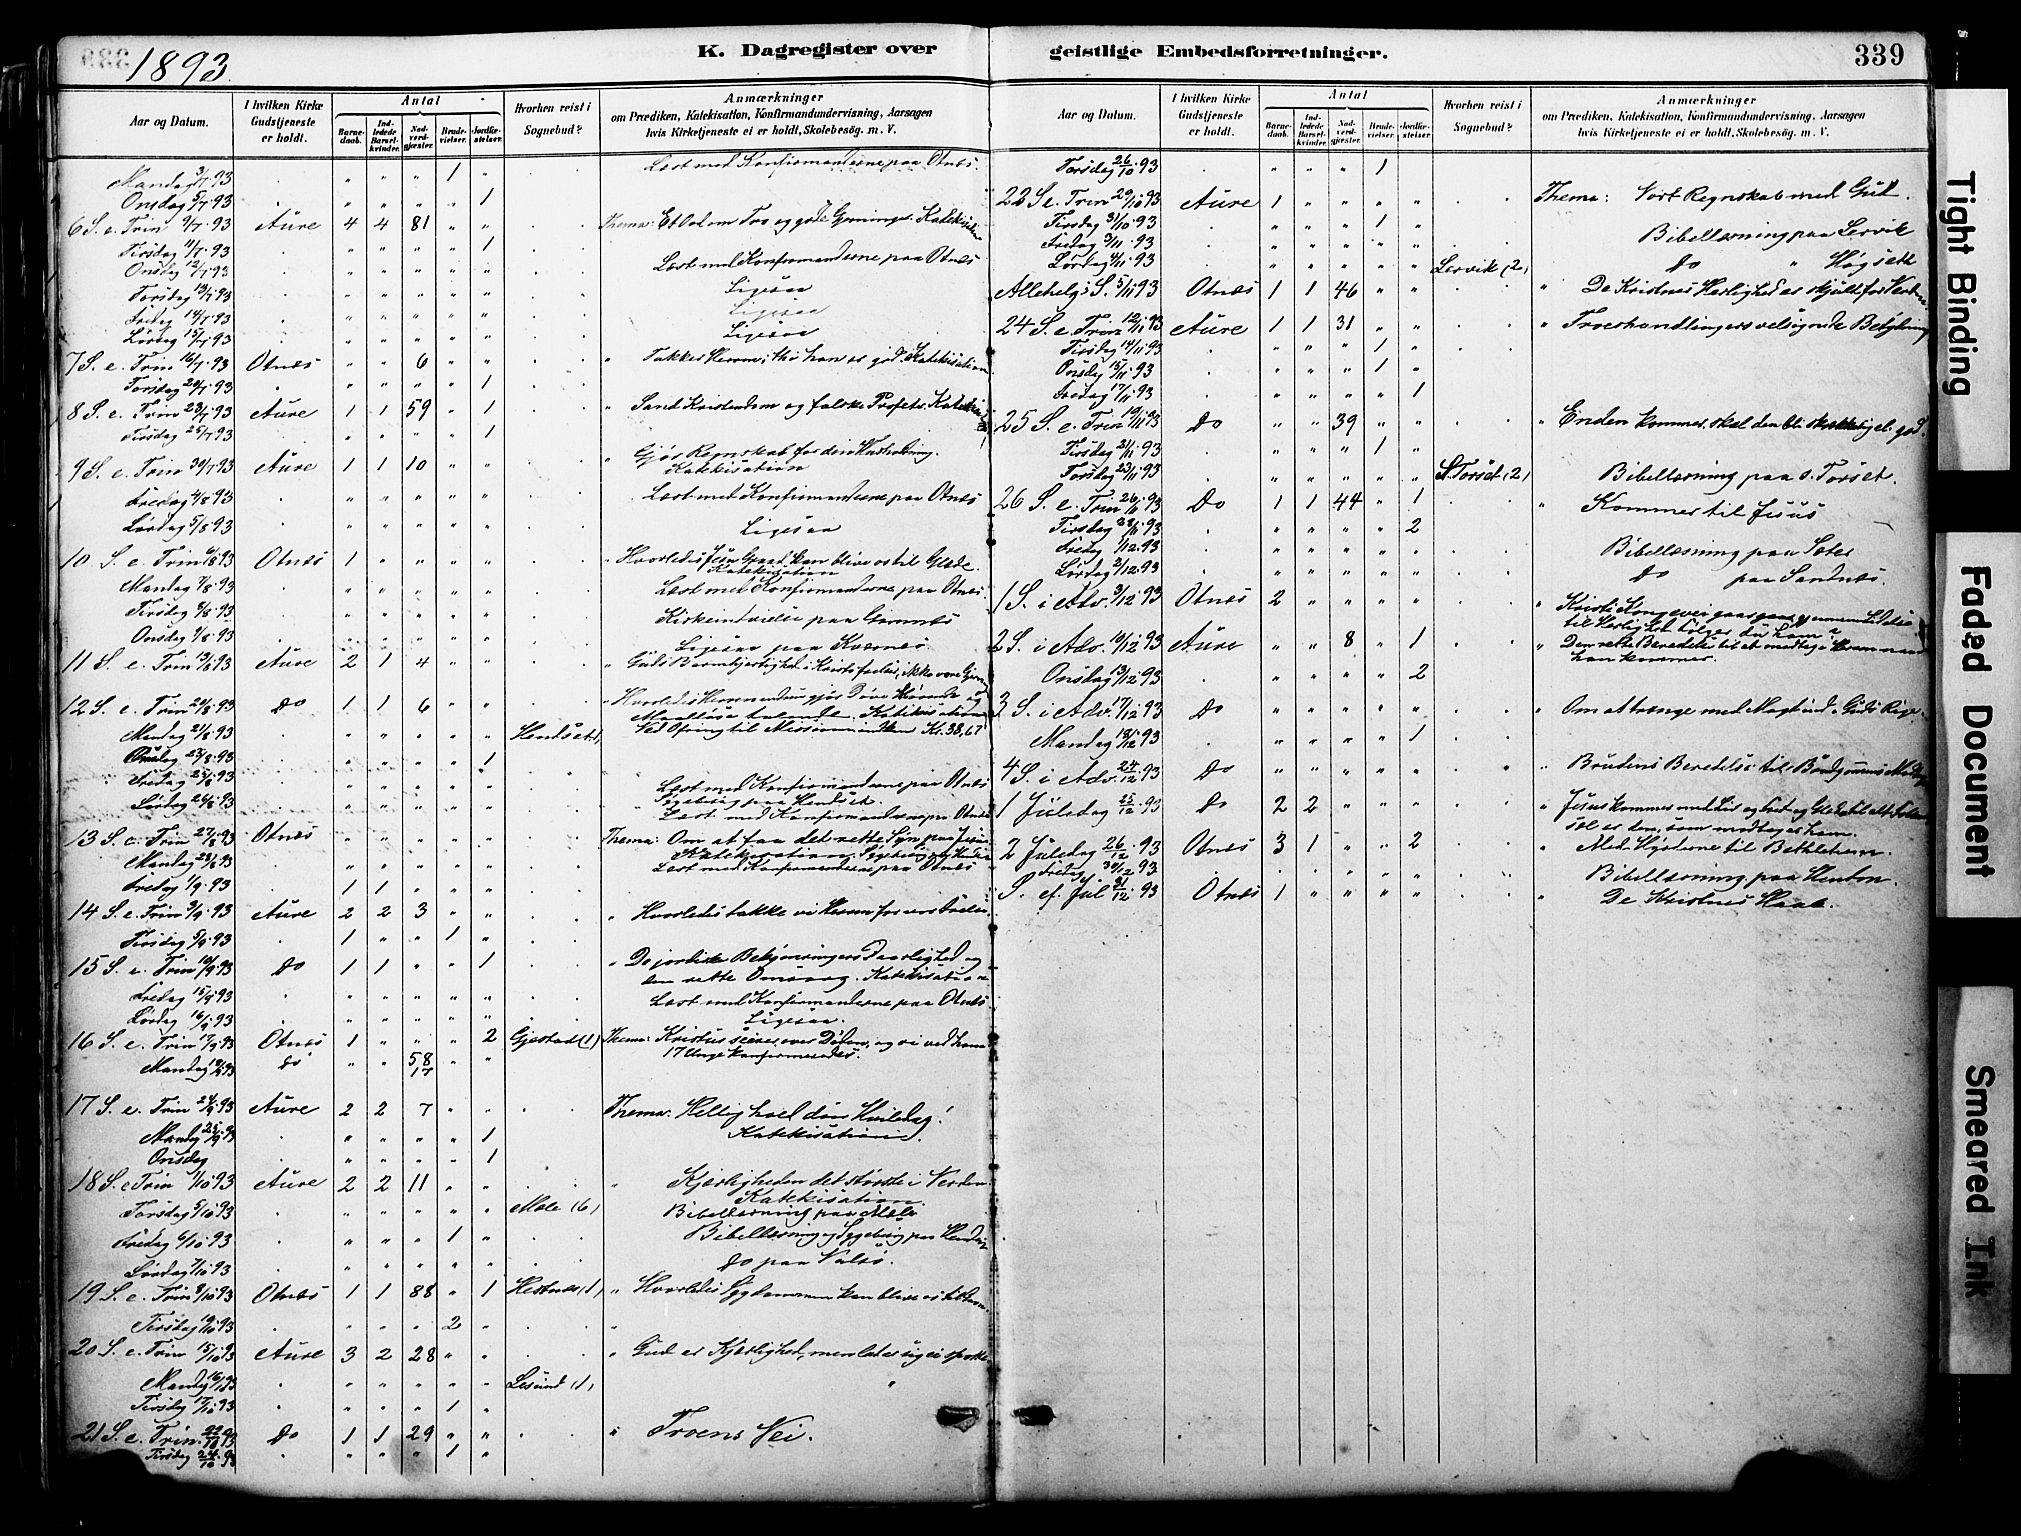 1893.
K. Dagregister over
geistlige Embedsforretninger.
339
Aar og Datum.
I hvilken Kirke Gudstjeneste er holdt.
Antal
Barnedaab.
Indledede Barselkvinder.
Nadverdgjæster.
Brudevielser.
Jordfæstelser.
Hvorhen reist i Sognebud?
Anmærkninger
om Prædiken, Katekisation, Konfirmandundervisning, Aarsagen
hvis Kirketjeneste ei er holdt, Skolebesög. m. V.
Mandag 3/7 93 . " " " 1 " Læst med Konfirmanderne paa Otnæs.
Onsdag 5/7 93 . " " " " 1
6 S. e. Trin 9/7 93 Aure 4 4 81 " " Thema: Et Ord om Tro og gode Gjerninger. Katekisation
Tirsdag 11/7 93 . " " " " 1
Onsdag 12/7 93 . " " " " " Læst med Konfirmanderne paa Otnæs
Torsdag 13/7 93 . " " " " " Ligesaa
Fredag 14/7 93 . " " " " " Ligesaa
Lørdag 15/7 93 . " " " " " Ligesaa
7 S. e. Trin 16/7 93 Otnæs " " 6 " " " Takker Herren; thi han er god. Katekisation
Torsdag 20/7 93 . " " " " 1
8 S. e. Trin 23/7 93 Aure 1 1 59 " 1 " Sand Kristendom og falske Profeter.
Tirsdag 25/7 93 . " " " " 1
9 S. e. Trin 30/7 93 Aure 1 1 10 " " " Gjør Regnskab for din Husholdning.
Katekisation
Fredag 4/8 93 . " " " " " Læst med Konfirmanderne paa Otnæs
Lørdag 5/8 93 . " " " " " Ligesaa
10 S. e. Trin 6/8 93 Otnæs 1 " " " " " Hvorledes Jesu Graad kan blive os til Glæde.
Katekisation
Mandag 7/8 93 . " " " " " Læst med Konfirmanderne paa Otnæs
Tirsdag 8/8 93 . " " " " " Kirkeindvielse paa
Onsdag 9/8 93 . " " " " " Ligesaa paa Kvernes
11 S. e. Trin 13/8 93 Aure 2 1 4 " " " Guds Barmhjertighed i Kristo
12 S. e. Trin 20/8 93 Do 1 1 6 " " " Hvorledes Herren endnu gjør Døve Hørende og
Maalløse talende. Katekisation
Mandag 21/8 93 . " " " " " Hendset Ved Ofring til Missionen Kr. 38,67
Onsdag 23/8 93 . " " " " 1
Fredag 25/8 93 . Læst med Konfirmanderne paa Otnæs
Sygebesøg paa Hendset.
Lørdag 26/8 93 . " " " " " Læst med Konfirmanderne paa Otnæs
13 S. e. Trin 27/8 93 Otnæs " " " " " Thema: Om at faa det rette Syn paa Jesus.
Katekisation.
Mandag 28/8 93 . " " " " " Læst med Konfirmanderne paa Otnæs
Fredag 1/9 93 . 1 1 " " "
14 S. e. Trin 3/9 93 Aure 2 2 3 " " " Hvorledes takke vi Herren for vor Frelse
Tirsdag 5/9 93 . 1 " " 1 "
15 S. e. Trin 10/9 93 Do 1 1 " " 1 " De jordiske Bekymringers Daarlighed og
den rette Omsorg. Katekisation
Fredag 15/9 93 . " " " " " Læst med Konfirmanderne paa Otnæs
Lørdag 16/9 93 . " " " " " Ligesaa.
16 S. e. Trin 17/9 93 Otnæs 1 " " " 2 Gjøstad (1) Thema: Kristus seirer over Døden, og vi ved ham
Mandag 18/9 93 do " " 58 " " 17 Unge konfirmeredes.
17
17 S. e. Trin 24/9 93 Aure 2 2 7 " " Thema: Hellig hold din Hviledag!
Katekisation.
Mandag 25/9 93 . " " " " 1
Onsdag . " " " " 1
18 S. e. Trin 1/10 93 Aure 2 2 11 " " " Kjærligheden det største i Verden.
Katekisation
Torsdag 5/10 93 . " " " " " Mæle (6) Bibellæsning paa Mæle
Fredag 6/10 93 . " " " 1 " Bibellæsning og Sygebesøg paa Hendset
Lørdag 7/10 93 . " " " " " do paa Valsø.
19 S. e. Trin 8/10 93 Otnæs 1 1 88 " 1 Hestnæs (1) " Hvorledes Sygdommen kan blive os til Gavn.
Tirsdag 10/10 93 . " " " 2 " "
20 S. e. Trin 15/10 93 Aure 3 2 28 " " " Gud er Kjærlighed, men lader sig ei spotte.
Mandag 16/10 93 . " " " " " Lesund (1) "
Tirsdag 17/10 93 . " " " 1 "
21 S. e. Trin. 22/10 93 Do 1 1 29 " " " Troens Vei.
Tirsdag 24/10 93 . " " " 1 "
Aar og Datum.
I hvilken Kirke Gudstjeneste er holdt.
Antal
Barnedaab.
Indledede Barselkvinder.
Nadverdgjæster.
Brudevielser.
Jordfæstelser.
Hvorhen reist i Sognebud?
Anmærkninger
om Prædiken, Katekisation, Konfirmandundervisning, Aarsagen
hvis Kirketjeneste ei er holdt, Skolebesög. m. V.
Torsdag 26/10 93 . " " " 1
22 S. e. Trin 29/10 93 Aure 1 " " " " Thema: Vort Regnskab med Gud.
Tirsdag 31/10 93 . " " " 1 "
Fredag 3/11 93 . " " " " " Bibellæsning paa Lervik
Lørdag 4/11 93 . " " " " " Lervik (2) Do " Høgset
Allehelg. S. 5/11 93 Otnæs 1 1 46 " " " De Kristnes Herlighed er skjult for Verden
24 S. e. Trin 12/11 93 Aure 1 1 31 " " " Troeshandlingers velsignede Betydning
Tirsdag 14/11 93 . " " " 1 "
Onsdag 15/11 93 . " " " 1 "
Fredag 17/11 93 . " " " " 1
25 S. e. Trin 19/11 93 Do " " 39 " " " Enden kommer, skal den bli skrækkelig el. god.
Tirsdag 21/11 93 . " " " 1 "
Torsdag 23/11 93 . " " " " " S. Torset (2) Bibellæsning paa S. Torset.
26 S. e. Trin 26/11 93 Do 1 1 44 " 1 " Kommer til Jesus
Tirsdag 28/11 93 . " " " " 2
Fredag 1/12 93 . " " " " " Bibellæsning paa Sæter
Lørdag 2/12 93 . " " " " " do paa Sandnæs.
1 S. i Adv. 3/12 93 Otnæs 2 " " " " " Kristi Kongevei gaar gjennem Lidelse
til Herlighed. Følger du ham?
2 S. i Adv 10/12 93 Aure " " 8 " 1 " Den rette Beredelse til at modtage Herren naar
han kommer.
Onsdag 13/12 93 . " " " " 2
3 S. i Adv. 17/12 93 Do " " " " " " Om at trænge med Magt ind i Guds Rige.
Mandag 18/12 93 . " " " " 1
4 S. i Adv. 24/12 93 Do " " " " " " Brudens Beredelse til Brudgommens
1 Juledag 25/12 93 Do 2 2 " " " " Jesus kommer med Lys og Fred og Glæde til alt Folket
Sæl er den, som modtager ham.
2 Juledag 26/12 93 Otnæs 3 1 " " 2 " Med Hyrderne til Bethlehem.
Fredag 30/12 93 . . " " " " Bibellæsning paa
S. ef. Jul 31/12 93 Otnæs 1 " " " " " De Kristnes Haab.
Tight Binding
Faded Document
Smeared Ink